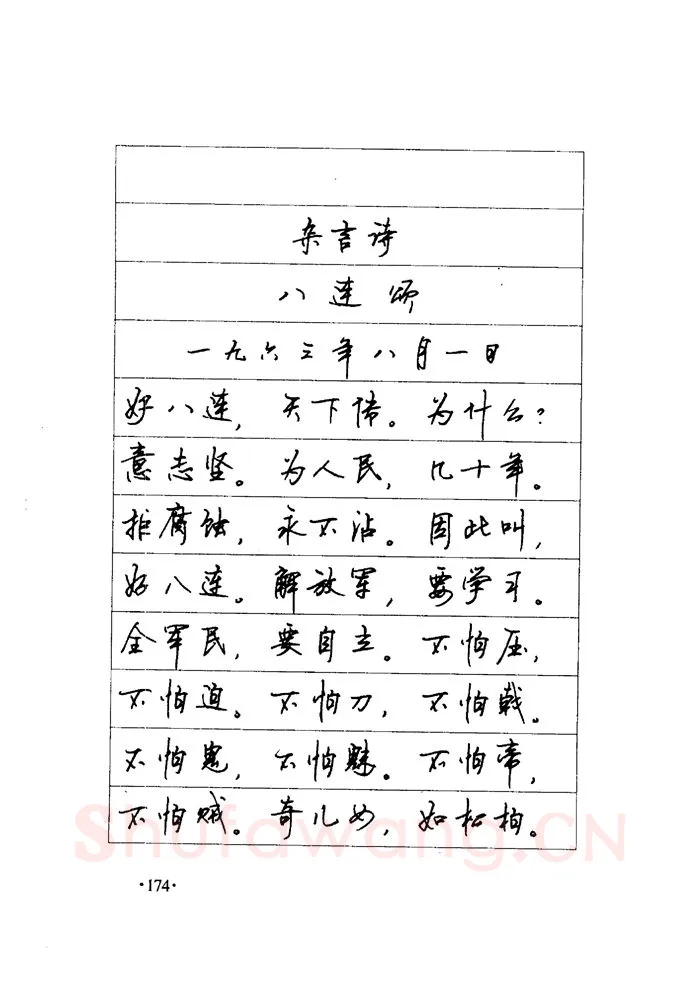 杂言诗
八连颂
一九六三年八月一日
好八连，天下传。为什么？
意志坚。为人民，几十年。
拒腐蚀，永不沾。因此叫，
好八连。解放军，要学习。
全军民，要自立。不怕压，
不怕迫。不怕刀，不怕戟。
不怕鬼，不怕魅。不怕帝，
不怕贼。奇儿女，如松柏。
Shufawang.CN
·174·